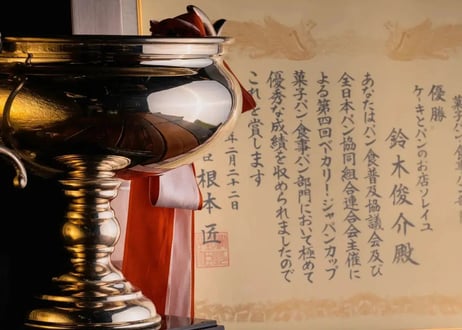 菓子パン・食事パン部門
優勝
ケーキとパンのお店ソレイユ
鈴木俊介殿
あなたはパン食普及協議会及び
全日本パン協同組合連合会主催に
よる第四回ベーカリー・ジャパンカップ
菓子パン・食事パン部門において極めて
優秀な成績を収められましたので
これを賞します
年二月二十二日
根本匠